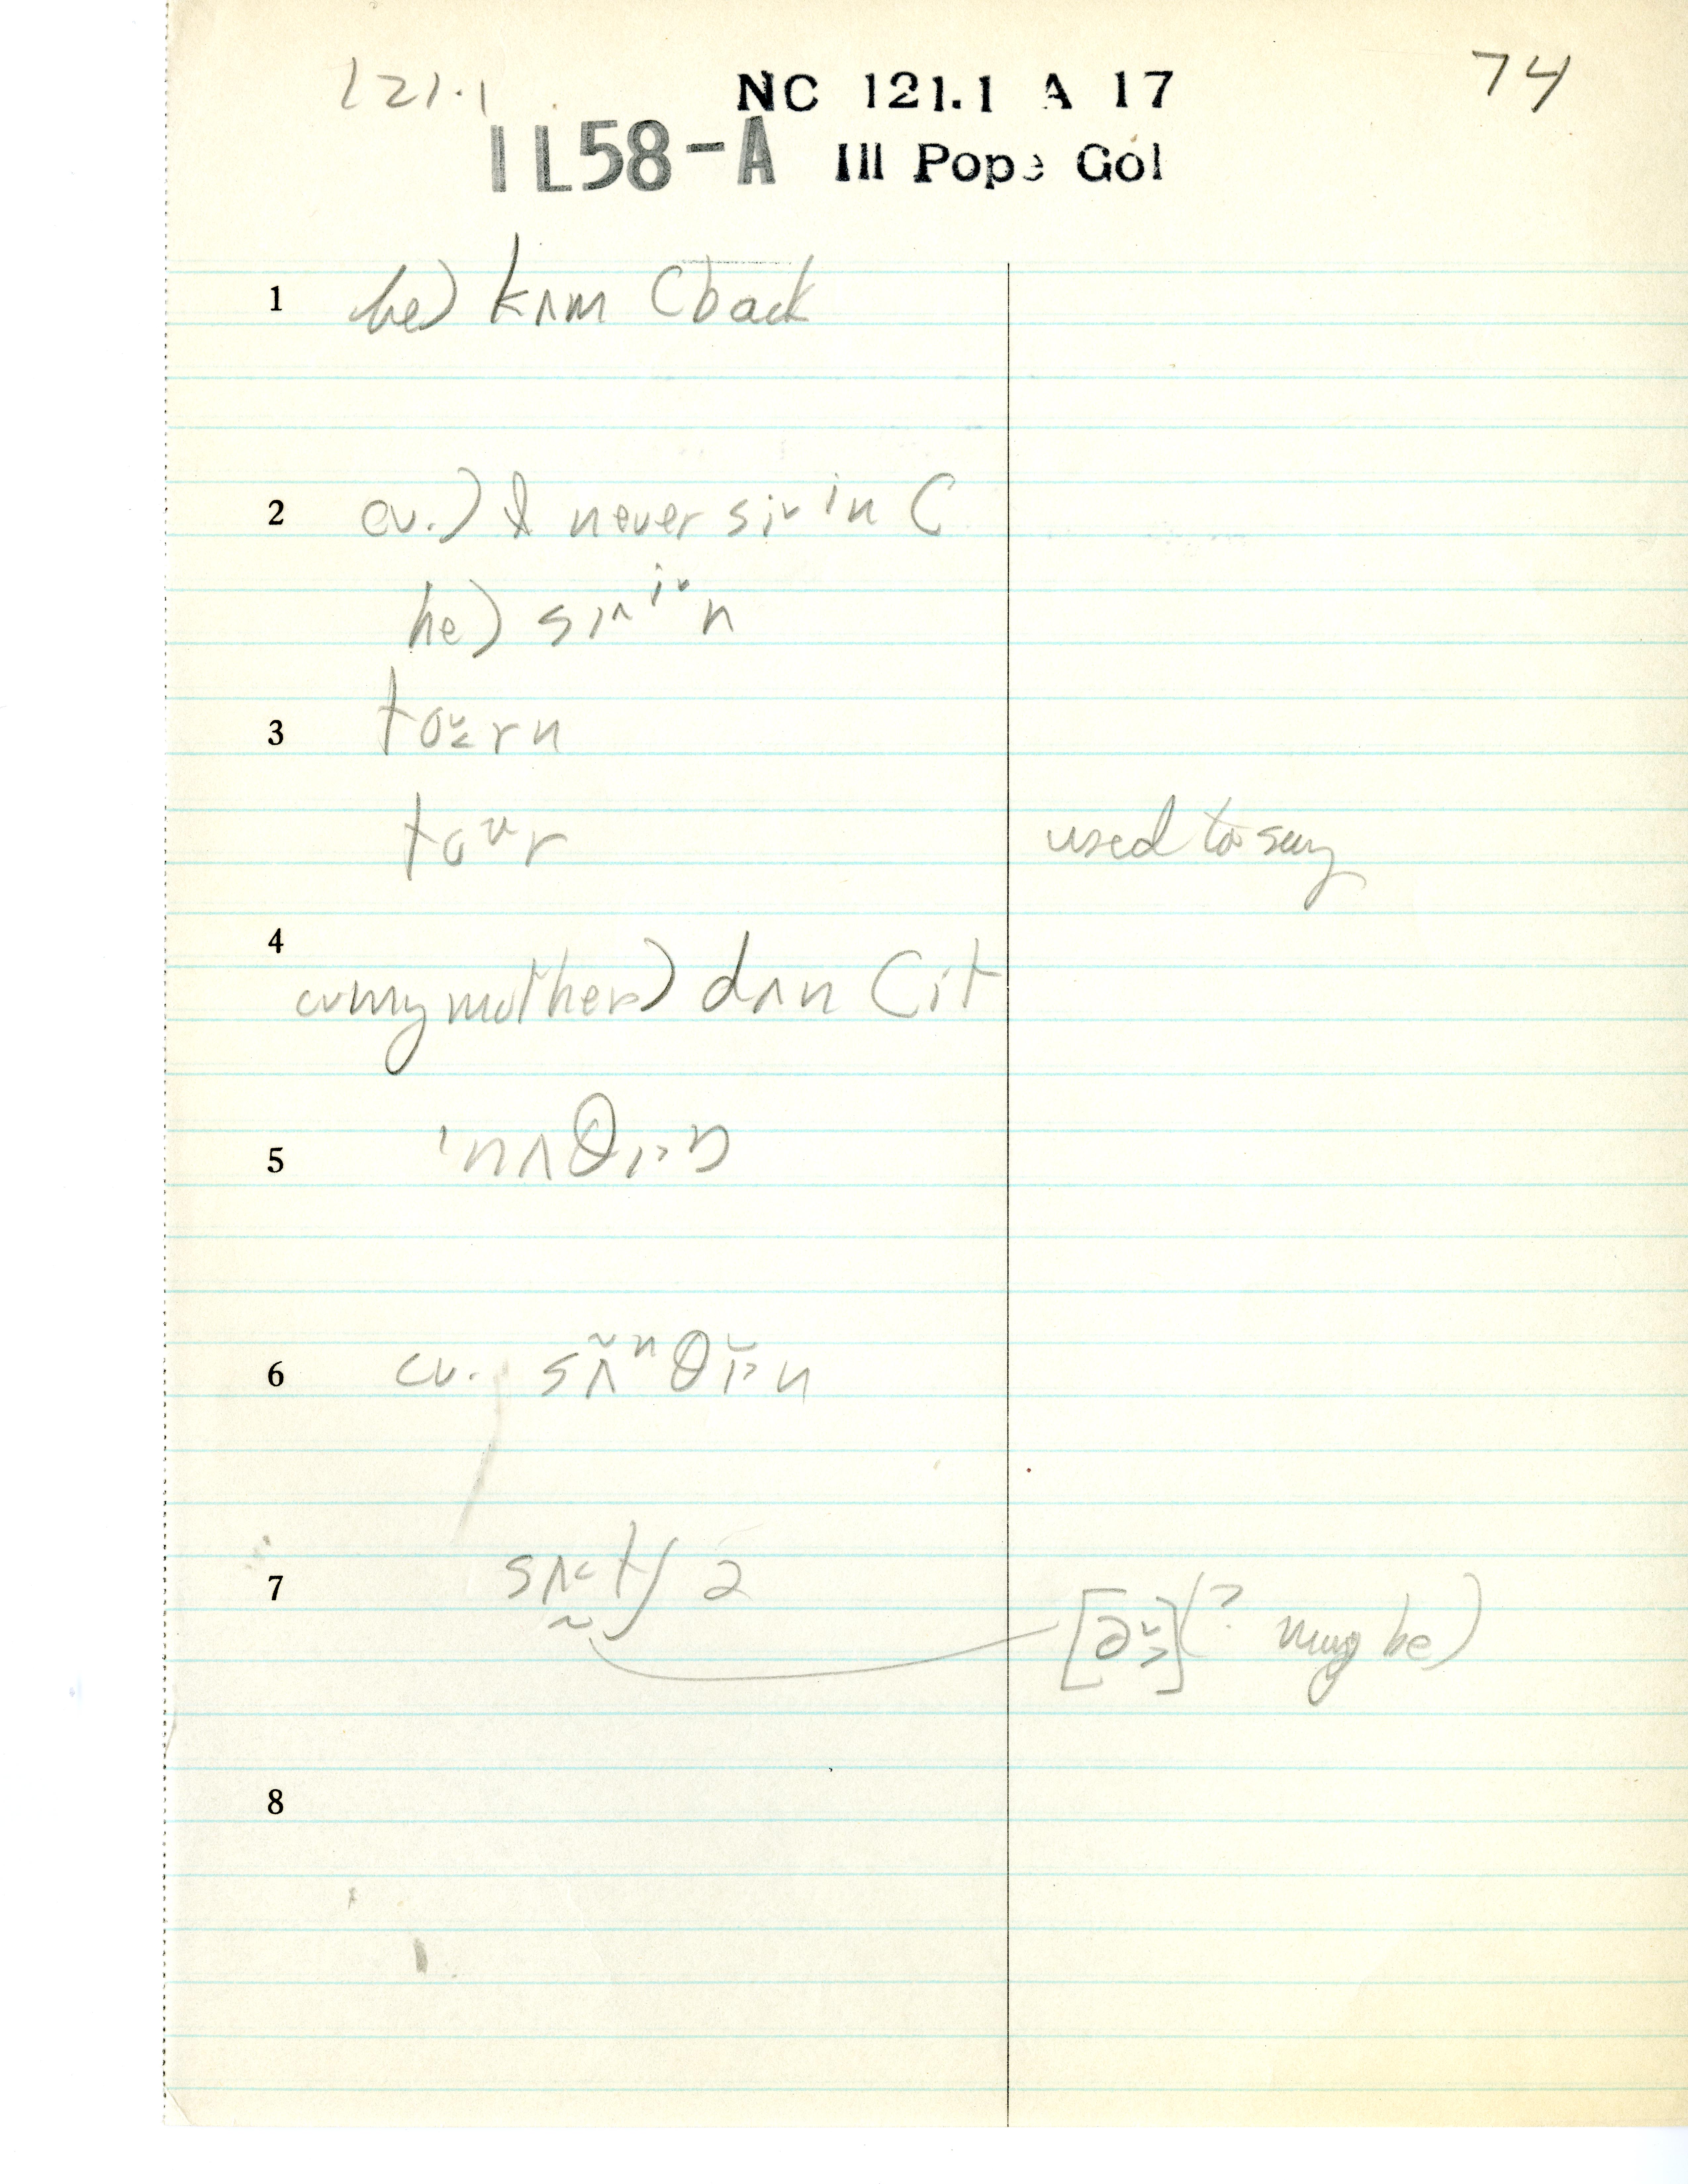 121.1 NC 121.1 A 17 74
IL58-A Ill Pope Gol
1 he) kʌm C back
2 cv.) I never si˅in C
he) sɪ^i˅n
3 tɑʊrn
tɔʊr used to say
4 cv my mother) dʌn C it
5 'nʌθɪ>ŋ
6 cv. sʌ̃ⁿθɪ̆>n
7 sʌ<tʃ ə [ə˅>] (? may be)
8